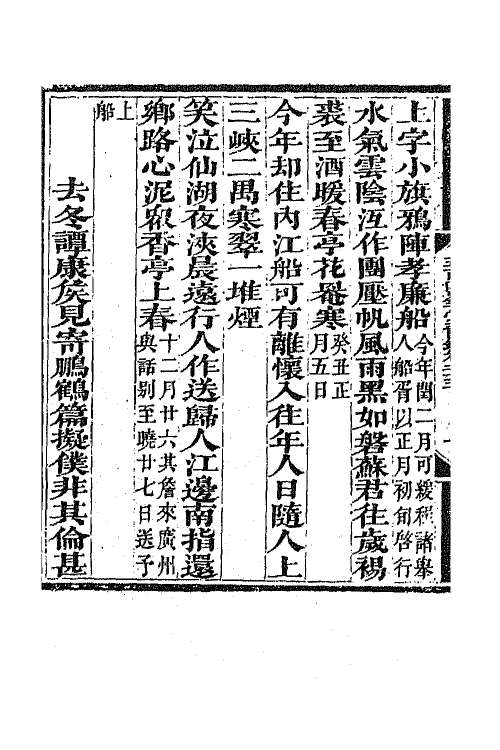 上字小旗鴉陣孝廉船今年閏二月可緩程諸舉人船胥以正月初旬啓行
水氣雲陰沍作團壓帆風雨黑如磐蘇君往歲裼
裘至酒暖春亭花罨寒癸丑正月五日
今年却住內江船可有離懷入往年人日隨人上
三峽二禺寒翠一堆煙
笑泣仙湖夜浹晨遠行人作送歸人江邊南指還
鄉路心泥寂香亭上春十二月廿六其詹來廣州與話别至曉廿七日送子
上船
去冬譚康侯見寄鵬鶴篇擬僕非其倫甚